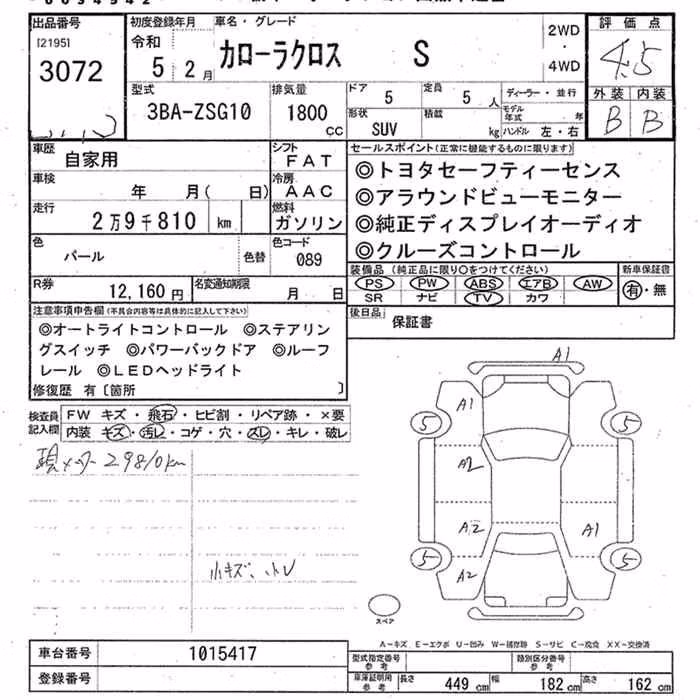 出品番号 初度登録年月 車名・グレード 2WD・4WD 評価点
[21951 令和
3072 5 2月 カローラクロス S 4.5
型式 排気量 ドア 定員 ディーラー・並行 外装 内装
3BA-ZSG10 1800 CC 5 5 人 モデル年式 年 B B
形状 SUV 積載 kg ハンドル 左・右
車歴 自家用 シフト FAT セールスポイント(正常に機能するものに限ります)
車検 年 月( 日) 冷房 AAC ◎トヨタセーフティーセンス
走行 2万9千810 km 燃料 ガソリン ◎アラウンドビューモニター
◎純正ディスプレイオーディオ
色 パール 色替 色コード 089 ◎クルーズコントロール
R券 12,160円 名変通知期限 月 日 装備品(純正品に限り○をつけてください) 新車保証書
PS PW ABS エアB AW 有・無
SR ナビ TV カワ
注意事項申告欄(不具合内容等は具体的に記入して下さい) 後日品 保証書
◎オートライトコントロール ◎ステアリン
グスイッチ ◎パワーバックドア ◎ルーフ
レール ◎LEDヘッドライト
修復歴 有〔箇所 〕
検査員記入欄 FW キズ・飛石・ヒビ割・リペア跡・×要
内装 キズ・汚レ・コゲ・穴・スレ・キレ・破レ
現メーター 29810km
小キズ、小U
A1
A1
5 5
A2
A2 A1
5 5
A2
スペア
A-キズ E-エクボ U-凹み W-補修跡 S-サビ C-腐食 XX-交換済
車台番号 1015417 型式指定番号参考 類別区分番号参考
登録番号 車庫証明用参考 長さ 449 cm 幅 182 cm 高さ 162 cm